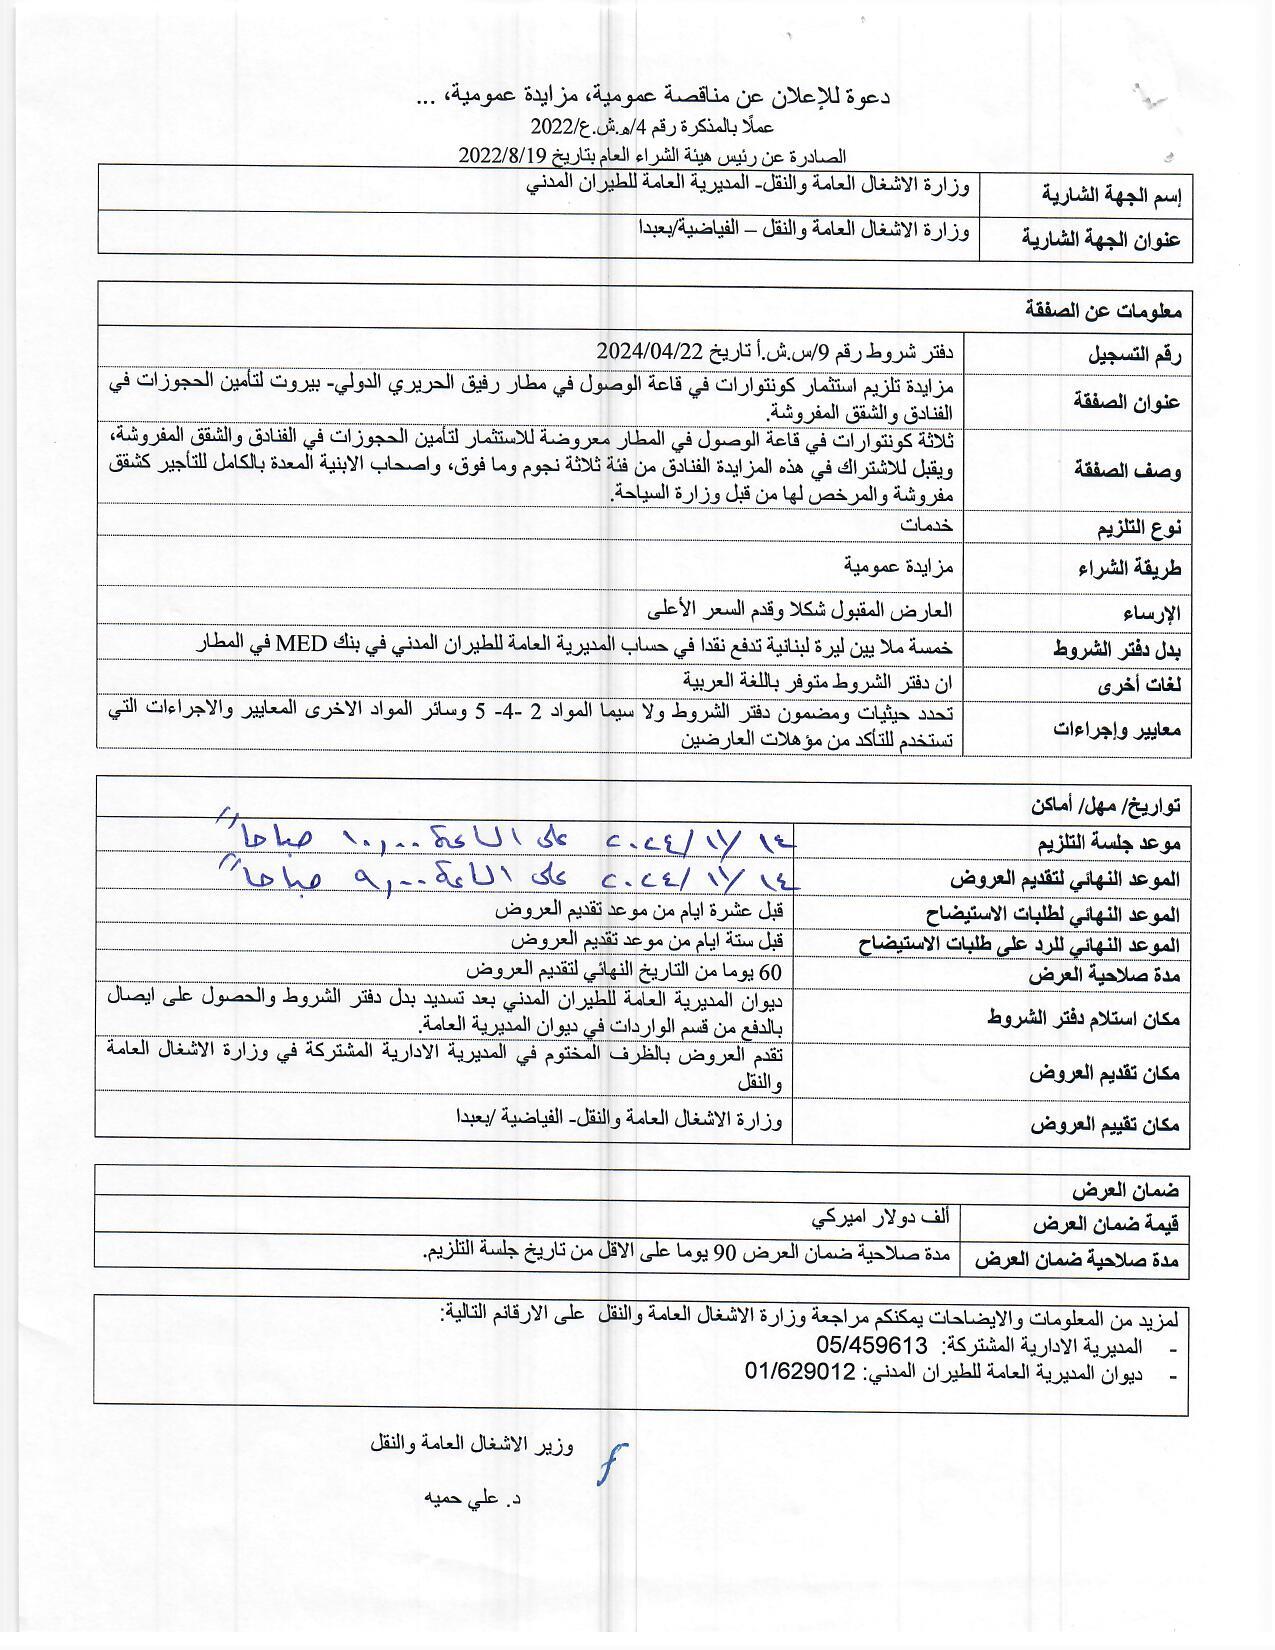 دعوة للإعلان عن مناقصة عمومية، مزايدة عمومية، ...
عملًا بالمذكرة رقم 4/ه.ش.ع/2022
الصادرة عن رئيس هيئة الشراء العام بتاريخ 2022/8/19
إسم الجهة الشارية وزارة الاشغال العامة والنقل- المديرية العامة للطيران المدني
عنوان الجهة الشارية وزارة الاشغال العامة والنقل – الفياضية/بعبدا
معلومات عن الصفقة
رقم التسجيل دفتر شروط رقم 9/س.ش.أ تاريخ 2024/04/22
عنوان الصفقة مزايدة تلزيم استثمار كونتوارات في قاعة الوصول في مطار رفيق الحريري الدولي- بيروت لتأمين الحجوزات في
الفنادق والشقق المفروشة.
وصف الصفقة ثلاثة كونتوارات في قاعة الوصول في المطار معروضة للاستثمار لتأمين الحجوزات في الفنادق والشقق المفروشة،
ويقبل للاشتراك في هذه المزايدة الفنادق من فئة ثلاثة نجوم وما فوق، واصحاب الابنية المعدة بالكامل للتأجير كشقق
مفروشة والمرخص لها من قبل وزارة السياحة.
نوع التلزيم خدمات
طريقة الشراء مزايدة عمومية
الإرساء العارض المقبول شكلا وقدم السعر الأعلى
بدل دفتر الشروط خمسة ملا يين ليرة لبنانية تدفع نقدا في حساب المديرية العامة للطيران المدني في بنك MED في المطار
لغات أخرى ان دفتر الشروط متوفر باللغة العربية
معايير وإجراءات تحدد حيثيات ومضمون دفتر الشروط ولا سيما المواد 2 -4- 5 وسائر المواد الاخرى المعايير والاجراءات التي
تستخدم للتأكد من مؤهلات العارضين
تواريخ/ مهل/ أماكن
موعد جلسة التلزيم ١٤ /١١/ ٢٠٢٤ على الساعة ١٠,٠٠ صباحاً
الموعد النهائي لتقديم العروض ١٤ /١١/ ٢٠٢٤ على الساعة ٩,٠٠ صباحاً
الموعد النهائي لطلبات الاستيضاح قبل عشرة ايام من موعد تقديم العروض
الموعد النهائي للرد على طلبات الاستيضاح قبل ستة ايام من موعد تقديم العروض
مدة صلاحية العرض 60 يوما من التاريخ النهائي لتقديم العروض
مكان استلام دفتر الشروط ديوان المديرية العامة للطيران المدني بعد تسديد بدل دفتر الشروط والحصول على ايصال
بالدفع من قسم الواردات في ديوان المديرية العامة.
مكان تقديم العروض تقدم العروض بالظرف المختوم في المديرية الادارية المشتركة في وزارة الاشغال العامة
والنقل
مكان تقييم العروض وزارة الاشغال العامة والنقل- الفياضية /بعبدا
ضمان العرض
قيمة ضمان العرض ألف دولار اميركي
مدة صلاحية ضمان العرض مدة صلاحية ضمان العرض 90 يوما على الاقل من تاريخ جلسة التلزيم.
لمزيد من المعلومات والايضاحات يمكنكم مراجعة وزارة الاشغال العامة والنقل على الارقانم التالية:
- المديرية الادارية المشتركة: 05/459613
- ديوان المديرية العامة للطيران المدني: 01/629012
وزير الاشغال العامة والنقل
د. علي حميه